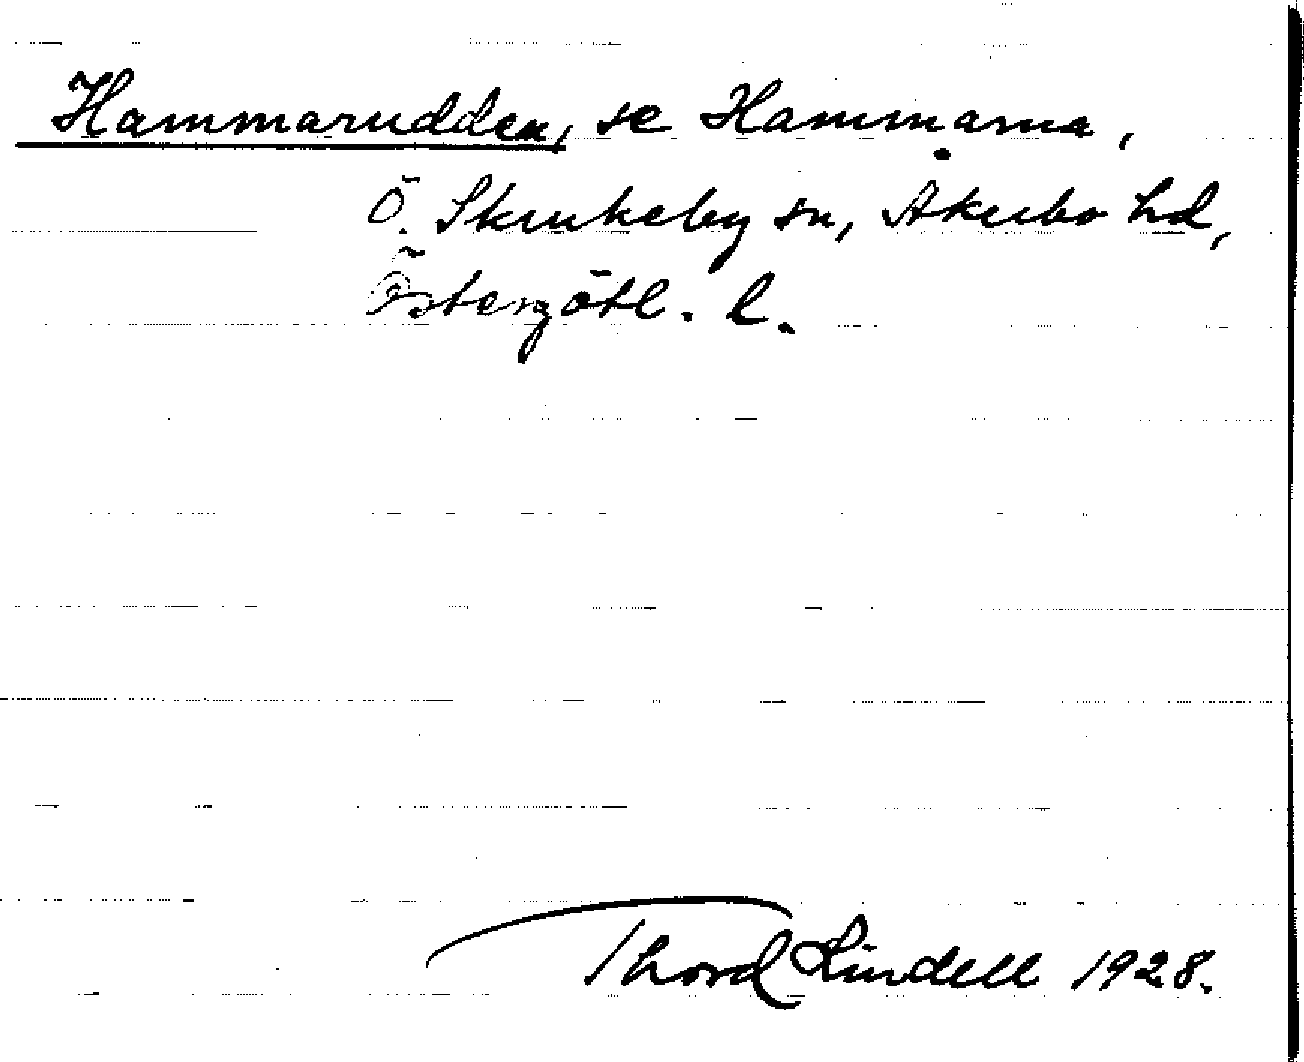 Hammarudden, se Hammarna,
Ö. Skrukeby sn, Åkerbo hd,
Östergötl. l.
Thord Lindell 1928.